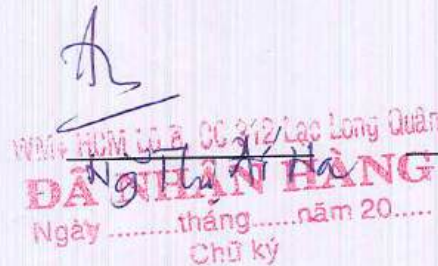 WM+ HCM Lô B, CC 312 Lạc Long Quân
Ng Thị Ái Ha
ĐÃ NHẬN HÀNG
Ngày ........tháng......năm 20.....
Chữ ký